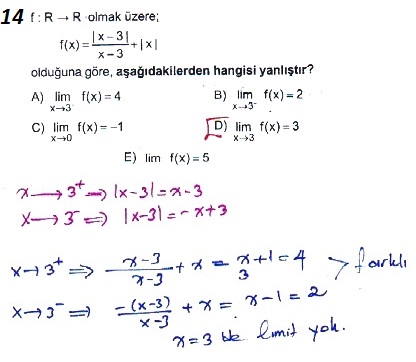 14 f : R → R olmak üzere;
f(x) = |x – 3| / x – 3 + |x|
olduğuna göre, aşağıdakilerden hangisi yanlıştır?
A) lim x→3 f(x) = 4 B) lim x→3⁻ f(x) = 2
C) lim x→0 f(x) = –1 D) lim x→3 f(x) = 3
E) lim f(x) = 5
x → 3⁺ ⇒ |x-3| = x-3
x → 3⁻ ⇒ |x-3| = -x+3
x → 3⁺ ⇒ x-3 / x-3 + x = x+1 = 4 > farklı
3
x → 3⁻ ⇒ -(x-3) / x-3 + x = x-1 = 2
x = 3 de limit yok.